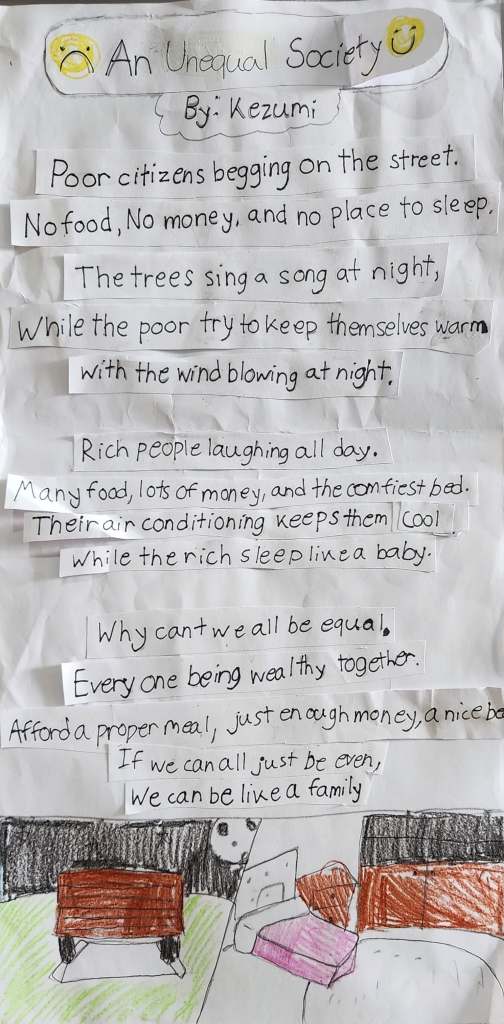 An Unequal Society
By: Kezumi
Poor citizens begging on the street.
No food, No money, and no place to sleep,
The trees sing a song at night,
While the poor try to keep themselves warm
with the wind blowing at night.
Rich people laughing all day.
Many food, lots of money, and the comfiest bed.
Their air conditioning keeps them cool
While the rich sleep like a baby.
Why cant we all be equal.
Every one being wealthy together.
Afford a proper meal, just enough money, a nice be
If we can all just be even,
We can be like a family